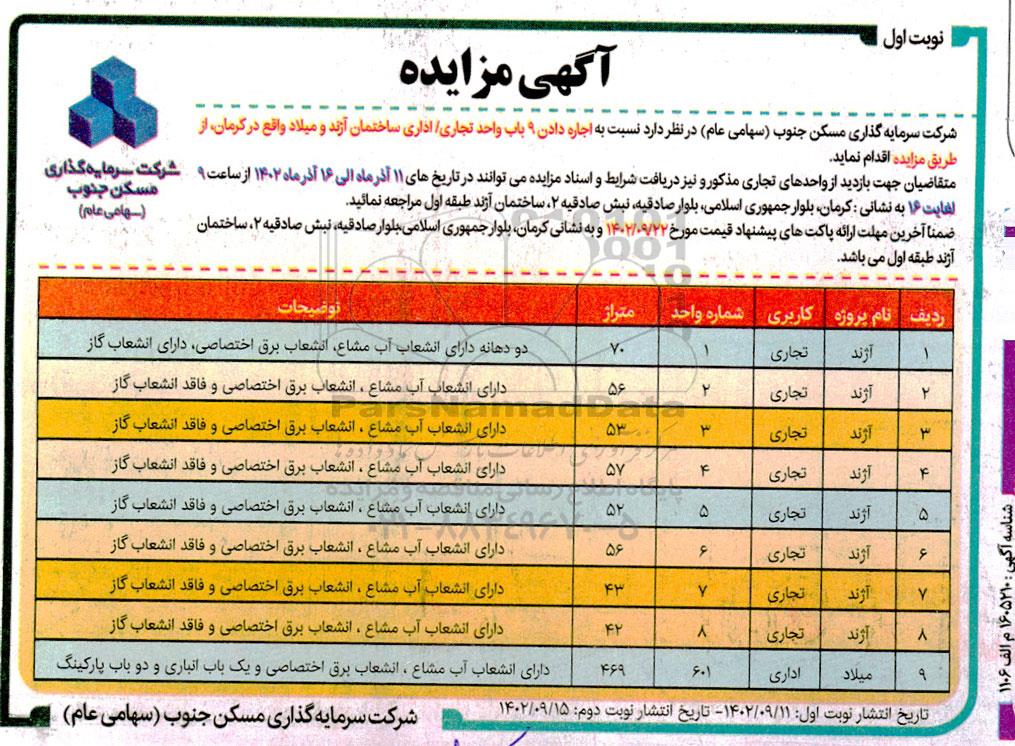 نوبت اول
آگهی مزایده
شرکت سرمایه‌گذاری مسکن جنوب
(سهامی عام)
شرکت سرمایه گذاری مسکن جنوب (سهامی عام) در نظر دارد نسبت به اجاره دادن ۹ باب واحد تجاری/ اداری ساختمان آژند و میلاد واقع در کرمان، از
طریق مزایده اقدام نماید.
متقاضیان جهت بازدید از واحدهای تجاری مذکور و نیز دریافت شرایط و اسناد مزایده می توانند در تاریخ های ۱۱ آذر ماه الی ۱۶ آذر ماه ۱۴۰۲ از ساعت ۹
لغایت ۱۶ به نشانی : کرمان، بلوار جمهوری اسلامی، بلوار صادقیه، نبش صادقیه ۲، ساختمان آژند طبقه اول مراجعه نمائید.
ضمنا آخرین مهلت ارائه پاکت های پیشنهاد قیمت مورخ ۱۴۰۲/۰۹/۲۲ و به نشانی کرمان، بلوار جمهوری اسلامی،بلوار صادقیه، نبش صادقیه ۲، ساختمان
آژند طبقه اول می باشد.
ردیف نام پروژه کاربری شماره واحد متراژ توضیحات
۱ آژند تجاری ۱ ۷۰ دو دهانه دارای انشعاب آب مشاع، انشعاب برق اختصاصی، دارای انشعاب گاز
۲ آژند تجاری ۲ ۵۶ دارای انشعاب آب مشاع ، انشعاب برق اختصاصی و فاقد انشعاب گاز
۳ آژند تجاری ۳ ۵۳ دارای انشعاب آب مشاع ، انشعاب برق اختصاصی و فاقد انشعاب گاز
۴ آژند تجاری ۴ ۵۷ دارای انشعاب آب مشاع ، انشعاب برق اختصاصی و فاقد انشعاب گاز
۵ آژند تجاری ۵ ۵۲ دارای انشعاب آب مشاع ، انشعاب برق اختصاصی و فاقد انشعاب گاز
۶ آژند تجاری ۶ ۵۶ دارای انشعاب آب مشاع ، انشعاب برق اختصاصی و فاقد انشعاب گاز
۷ آژند تجاری ۷ ۴۳ دارای انشعاب آب مشاع ، انشعاب برق اختصاصی و فاقد انشعاب گاز
۸ آژند تجاری ۸ ۴۲ دارای انشعاب آب مشاع ، انشعاب برق اختصاصی و فاقد انشعاب گاز
۹ میلاد اداری ۶۰۱ ۴۶۹ دارای انشعاب آب مشاع ، انشعاب برق اختصاصی و یک باب انباری و دو باب پارکینگ
تاریخ انتشار نوبت اول: ۱۴۰۲/۰۹/۱۱- تاریخ انتشار نوبت دوم: ۱۴۰۲/۰۹/۱۵
شرکت سرمایه گذاری مسکن جنوب (سهامی عام)
شناسه آگهی : ۱۶۰۵۲۱۰ م الف ۱۱۰۶
ParsNamadData
پایگاه اطلاع رسانی مناقصه و مزایده
۰۲۱-۸۸۳۴۹۶۷۰-۵